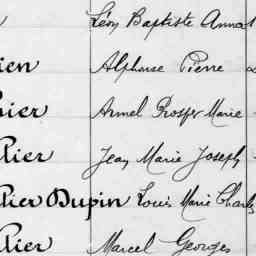 Léon Baptiste Anna
ien Alphonse Pierre
ier Armel Prosper Marie
lier Jean Marie Joseph
lier Dupin Louis Marie Charles
lier Marcel Georges